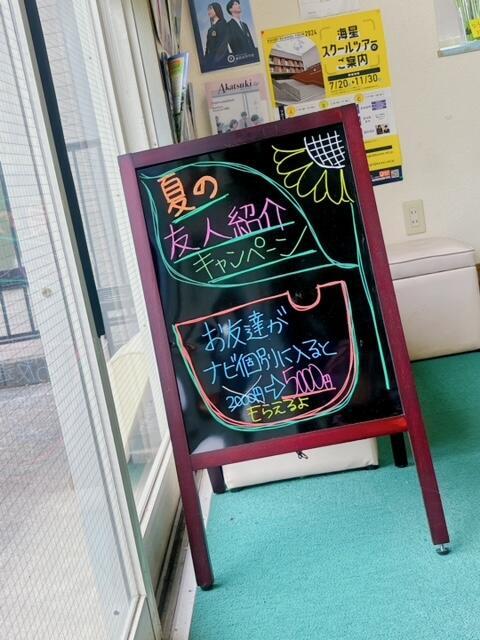 Akatsuki
2024
海星
スクールツアーの
ご案内
7/20▸11/30
夏の
友人紹介
キャンペーン
お友達が
ナビ個別に入ると
2000円⇨5000円
もらえるよ